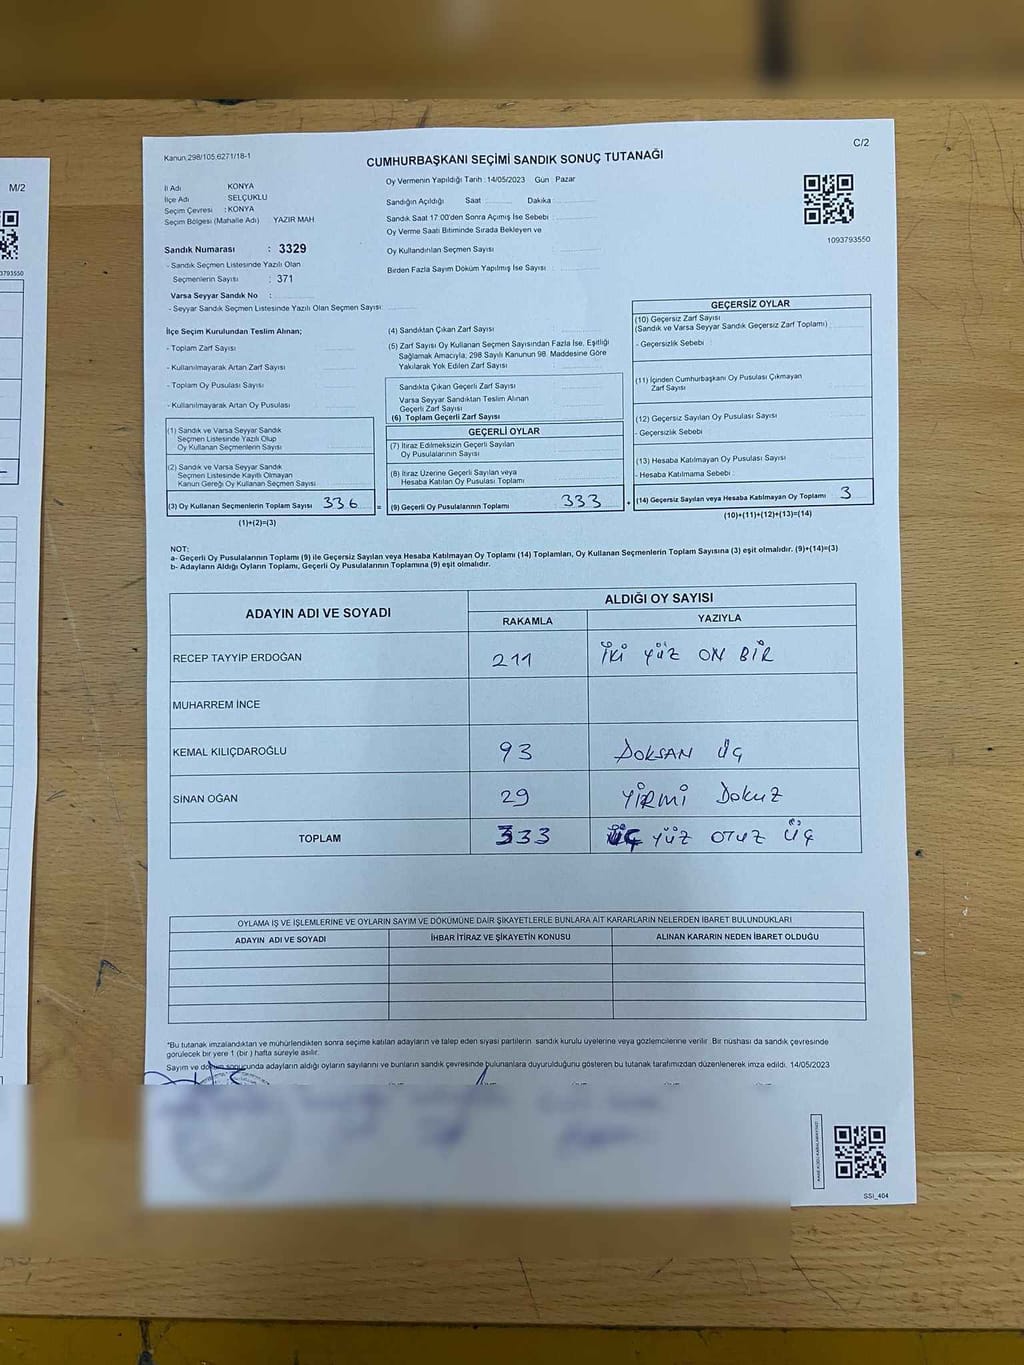 M/2
3793550
C/2
Kanun 298/105.6271/18-1
CUMHURBAŞKANI SEÇİMİ SANDIK SONUÇ TUTANAĞI
1093793550
İl Adı KONYA
İlçe Adı SELÇUKLU
Seçim Çevresi : KONYA
Seçim Bölgesi (Mahalle Adı) YAZIR MAH
Sandık Numarası : 3329
- Sandık Seçmen Listesinde Yazılı Olan
Seçmenlerin Sayısı : 371
Varsa Seyyar Sandık No :
- Seyyar Sandık Seçmen Listesinde Yazılı Olan Seçmen Sayısı:
Oy Vermenin Yapıldığı Tarih : 14/05/2023 Gün : Pazar
Sandığın Açıldığı Saat Dakika
Sandık Saat 17:00'den Sonra Açımış İse Sebebi
Oy Verme Saati Bitiminde Sırada Bekleyen ve
Oy Kullandırılan Seçmen Sayısı
Birden Fazla Sayım Döküm Yapılmış İse Sayısı
İlçe Seçim Kurulundan Teslim Alınan;
- Toplam Zarf Sayısı
- Kullanılmayarak Artan Zarf Sayısı
- Toplam Oy Pusulası Sayısı
- Kullanılmayarak Artan Oy Pusulası
(1) Sandık ve Varsa Seyyar Sandık
Seçmen Listesinde Yazılı Olup
Oy Kullanan Seçmenlerin Sayısı
(2) Sandık ve Varsa Seyyar Sandık
Seçmen Listesinde Kayıtlı Olmayan
Kanun Gereği Oy Kullanan Seçmen Sayısı
(3) Oy Kullanan Seçmenlerin Toplam Sayısı 336
(1)+(2)=(3)
(4) Sandıktan Çıkan Zarf Sayısı
(5) Zarf Sayısı Oy Kullanan Seçmen Sayısından Fazla İse, Eşitliği
Sağlamak Amacıyla, 298 Sayılı Kanunun 98. Maddesine Göre
Yakılarak Yok Edilen Zarf Sayısı
Sandıkta Çıkan Geçerli Zarf Sayısı
Varsa Seyyar Sandıktan Teslim Alınan
Geçerli Zarf Sayısı
(6) Toplam Geçerli Zarf Sayısı
GEÇERLİ OYLAR
(7) İtiraz Edilmeksizin Geçerli Sayılan
Oy Pusulalarının Sayısı
(8) İtiraz Üzerine Geçerli Sayılan veya
Hesaba Katılan Oy Pusulası Toplamı
= (9) Geçerli Oy Pusulalarının Toplamı 333 +
GEÇERSİZ OYLAR
(10) Geçersiz Zarf Sayısı
(Sandık ve Varsa Seyyar Sandık Geçersiz Zarf Toplamı)
- Geçersizlik Sebebi :
(11) İçinden Cumhurbaşkanı Oy Pusulası Çıkmayan
Zarf Sayısı
(12) Geçersiz Sayılan Oy Pusulası Sayısı
- Geçersizlik Sebebi
(13) Hesaba Katılmayan Oy Pusulası Sayısı
- Hesaba Katılmama Sebebi :
(14) Geçersiz Sayılan veya Hesaba Katılmayan Oy Toplamı 3
(10)+(11)+(12)+(13)=(14)
NOT:
a- Geçerli Oy Pusulalarının Toplamı (9) ile Geçersiz Sayılan veya Hesaba Katılmayan Oy Toplamı (14) Toplamları, Oy Kullanan Seçmenlerin Toplam Sayısına (3) eşit olmalıdır. (9)+(14)=(3)
b- Adayların Aldığı Oyların Toplamı, Geçerli Oy Pusulalarının Toplamına (9) eşit olmalıdır.
ADAYIN ADI VE SOYADI ALDIĞI OY SAYISI
RAKAMLA YAZIYLA
RECEP TAYYİP ERDOĞAN 211 İKİ YÜZ ON BİR
MUHARREM İNCE
KEMAL KILIÇDAROĞLU 93 DOKSAN ÜÇ
SİNAN OĞAN 29 YİRMİ DOKUZ
TOPLAM 333 ÜÇ YÜZ OTUZ ÜÇ
OYLAMA İŞ VE İŞLEMLERİNE VE OYLARIN SAYIM VE DÖKÜMÜNE DAİR ŞİKAYETLERLE BUNLARA AİT KARARLARIN NELERDEN İBARET BULUNDUKLARI
ADAYIN ADI VE SOYADI İHBAR İTİRAZ VE ŞİKAYETİN KONUSU ALINAN KARARIN NEDEN İBARET OLDUĞU
"Bu tutanak imzalandıktan ve mühürlendikten sonra seçime katılan adayların ve talep eden siyasi partilerin sandık kurulu üyelerine veya gözlemcilerine verilir. Bir nüshası da sandık çevresinde
görülecek bir yere 1 (bir) hafta süreyle asılır.
Sayım ve döküm sonucunda adayların aldığı oyların sayılarını ve bunların sandık çevresinde bulunanlara duyurulduğunu gösteren bu tutanak tarafımızdan düzenlenerek imza edildi. 14/05/2023
SSI_404